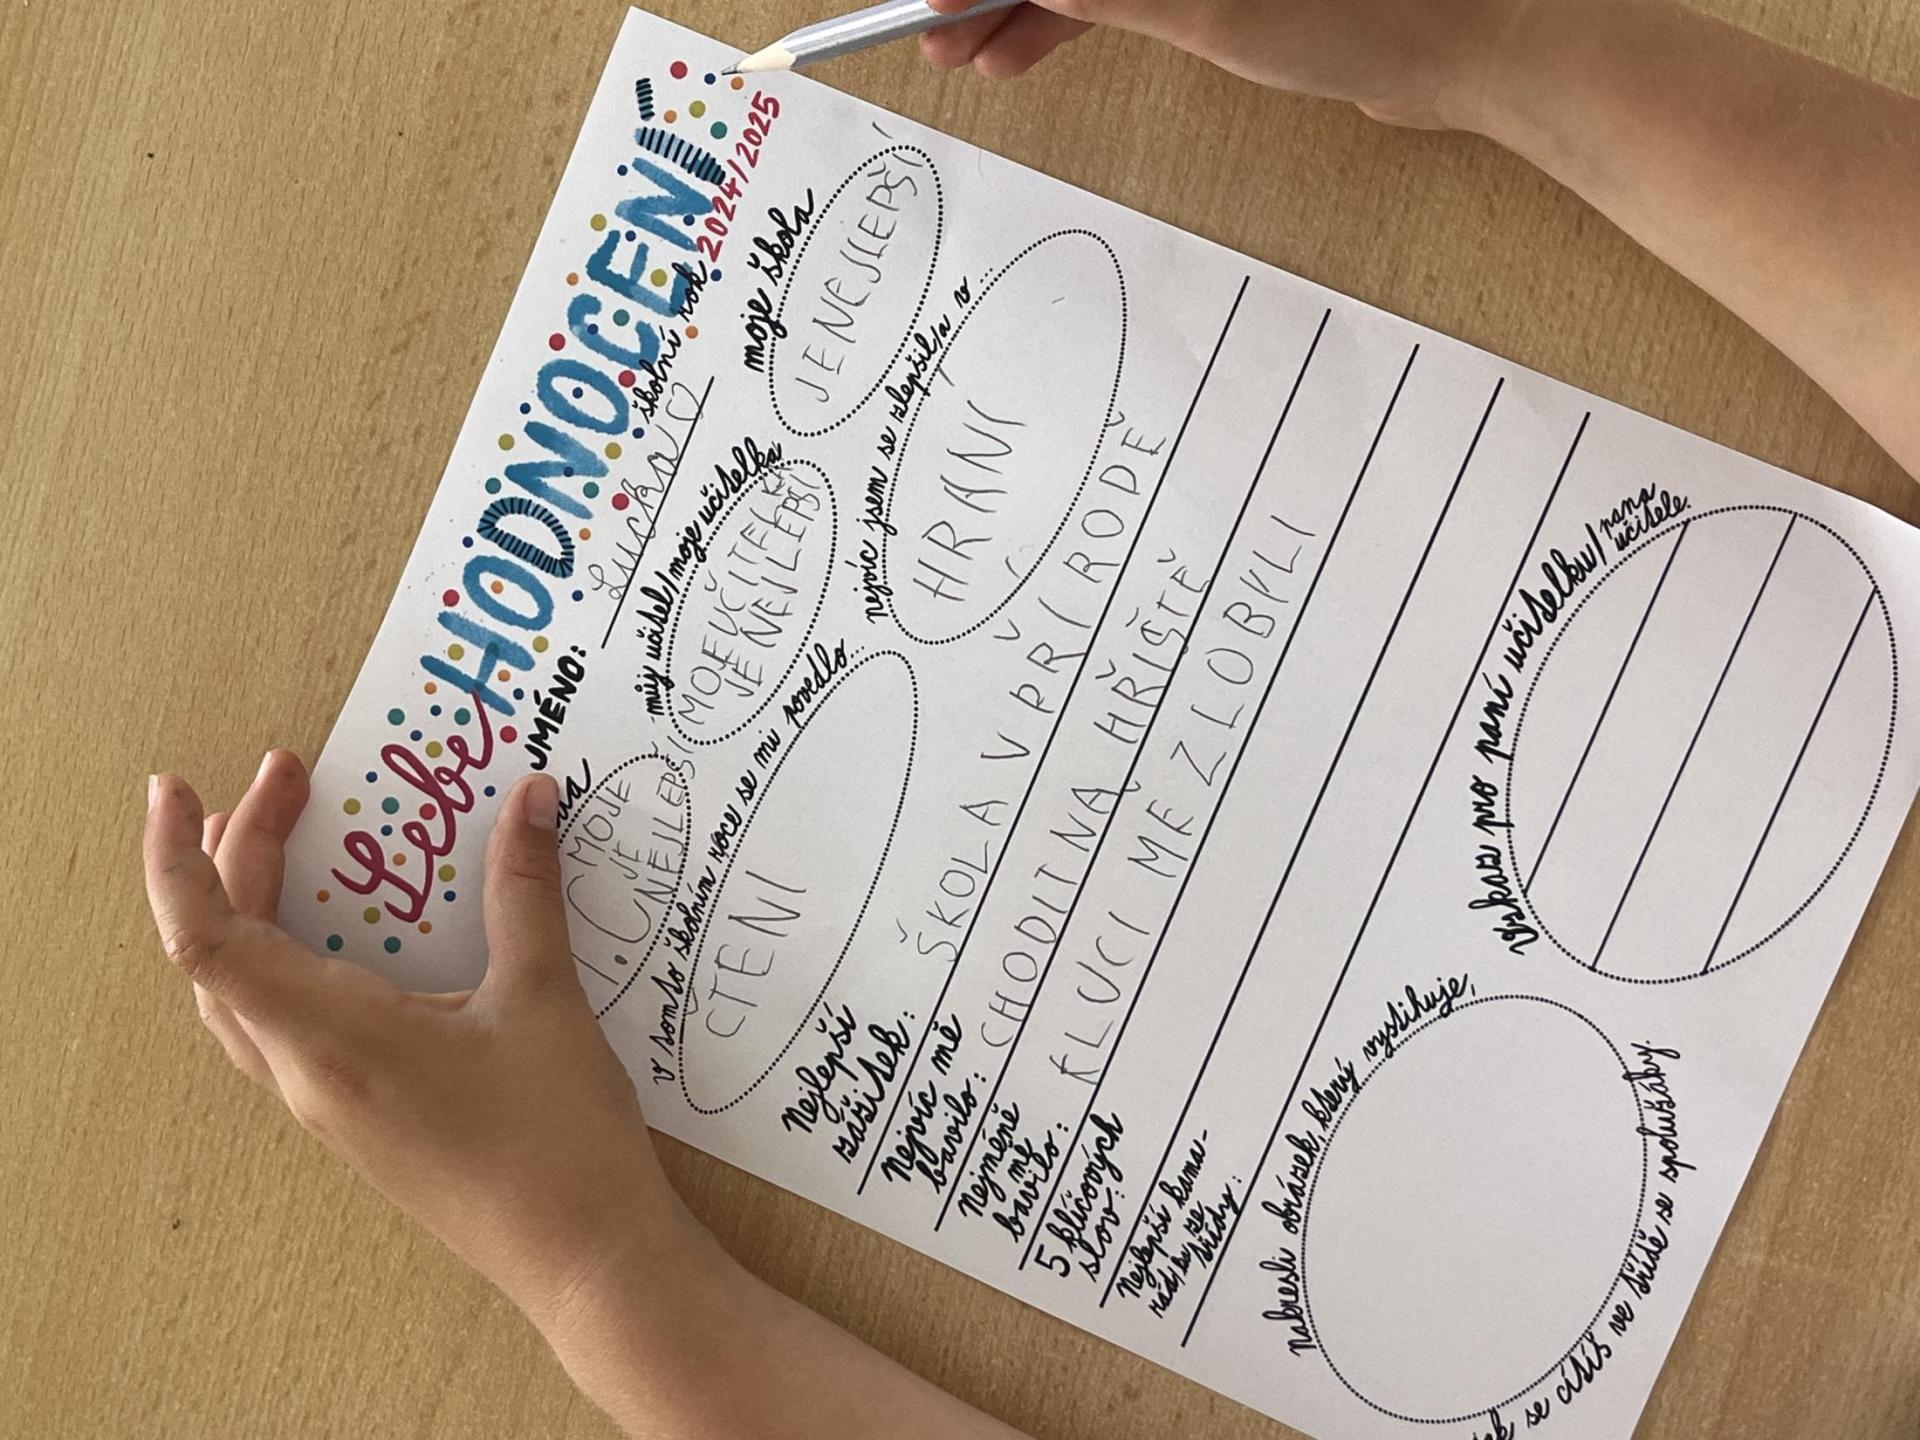 SebeHODNOCENÍ
školní rok 2024/2025
JMÉNO: Lucka ♡
můj učitel/moje učitelka
moje škola
1.C MOJE
JE
NEJLEPŠÍ
MOJE UČITELKA
JE NEJLEPŠÍ
JE NEJLEPŠÍ
v tomto školním roce se mi povedlo...
nejvíc jsem se zlepšil/a v...
ČTENÍ
HRANÍ
Nejlepší zážitek: ŠKOLA V PŘÍRODĚ
Nejvíc mě bavilo: CHODIT NA HŘIŠTĚ
Nejméně mě bavilo: KLUCI MĚ ZLOBYLI
5 klíčových slov:
Nejlepší kamarád/ka ze třídy:
nakresli obrázek, který vystihuje,
jak se cítíš ve třídě se spolužáky.
Vzkaz pro paní učitelku/pana učitele.